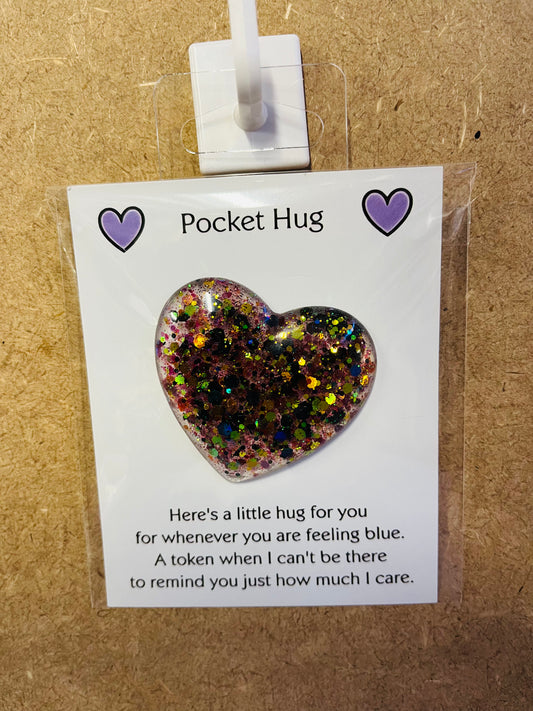 Pocket Hug
Here's a little hug for you
for whenever you are feeling blue.
A token when I can't be there
to remind you just how much I care.